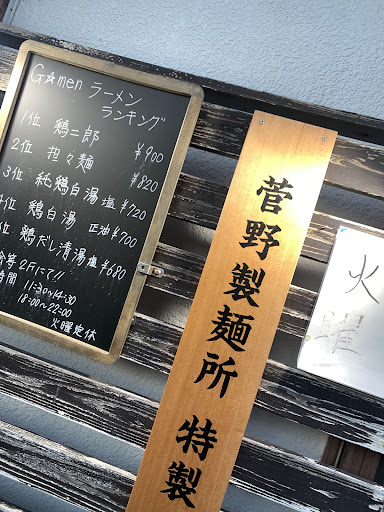 G☆menラーメン
ランキング
1位 鶏二郎 ¥900
2位 担々麺 ¥820
3位 純鶏白湯 塩 ¥720
4位 鶏白湯 正油 ¥700
位 鶏だし清湯 塩 ¥680
2Fにて!!
時間 11:30〜14:30
18:00〜22:00
火曜定休
菅野製麺所 特製
火
曜